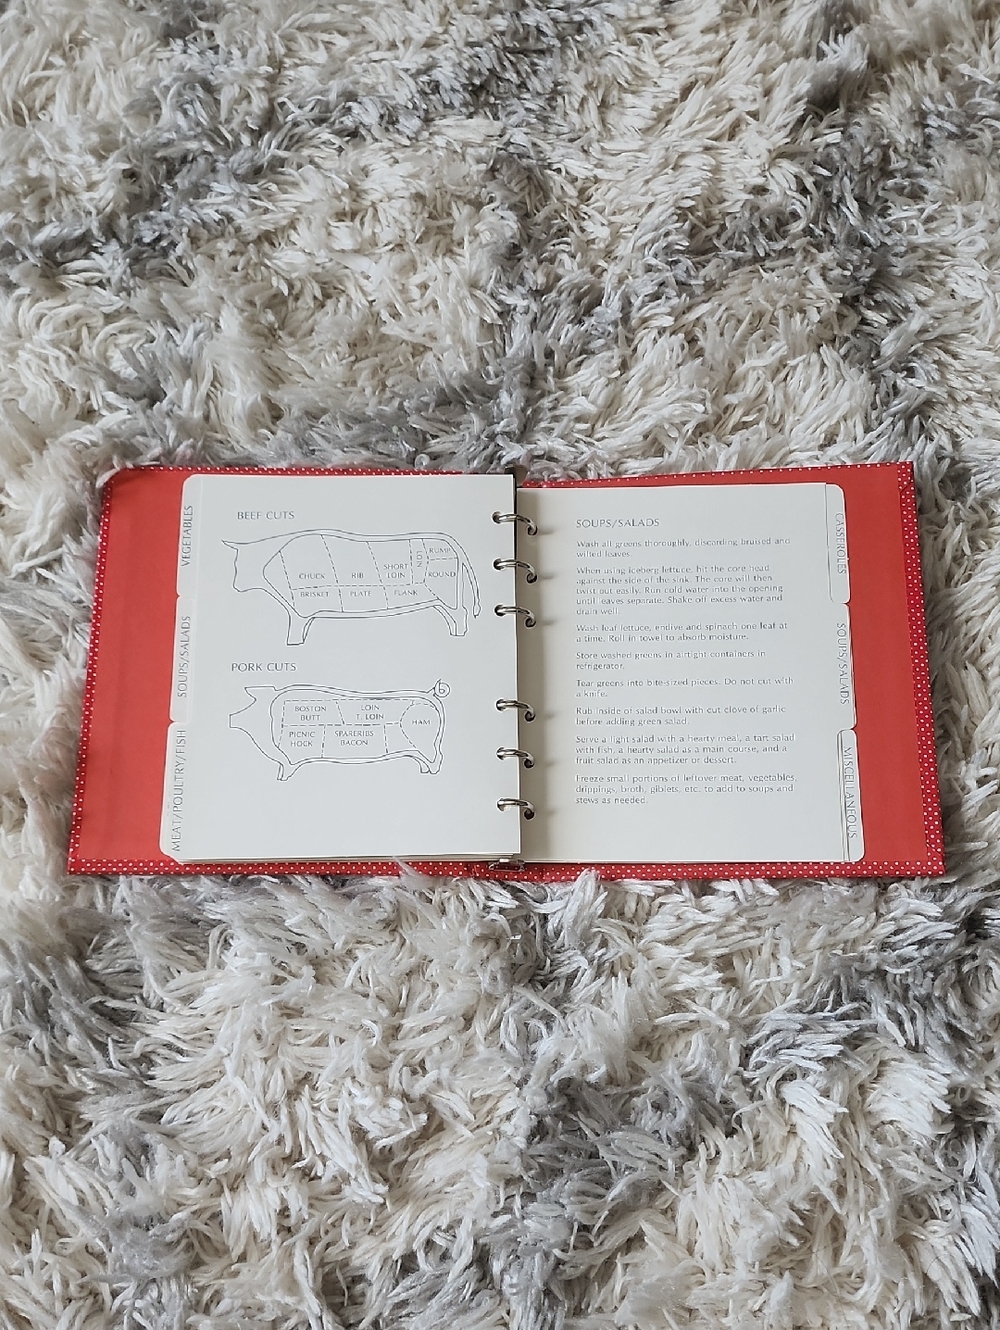 VEGETABLES
SOUPS/SALADS
MEAT/POULTRY/FISH
BEEF CUTS
CHUCK
RIB
SHORT
LOIN
LOIN
RUMP
ROUND
BRISKET
PLATE
FLANK
PORK CUTS
BOSTON
BUTT
LOIN
T. LOIN
HAM
PICNIC
HOCK
SPARERIBS
BACON
SOUPS/SALADS
Wash all greens thoroughly, discarding bruised and
wilted leaves.
When using iceberg lettuce, hit the core head
against the side of the sink. The core will then
twist out easily. Run cold water into the opening
until leaves separate. Shake off excess water and
drain well.
Wash leaf lettuce, endive and spinach one leaf at
a time. Roll in towel to absorb moisture.
Store washed greens in airtight containers in
refrigerator.
Tear greens into bite-sized pieces. Do not cut with
a knife.
Rub inside of salad bowl with cut clove of garlic
before adding green salad.
Serve a light salad with a hearty meal, a tart salad
with fish, a hearty salad as a main course, and a
fruit salad as an appetizer or dessert.
Freeze small portions of leftover meat, vegetables,
drippings, broth, giblets, etc. to add to soups and
stews as needed.
CASSEROLES
SOUPS/SALADS
MISCELLANEOUS